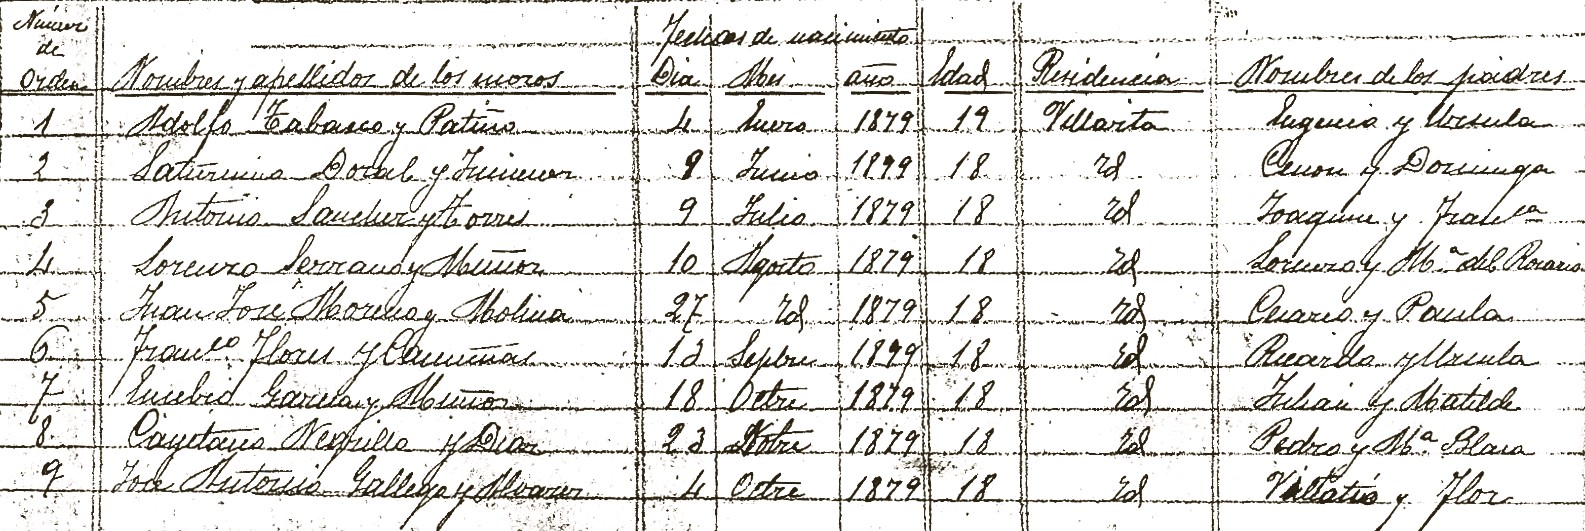 Número de Orden Nombres y apellidos de los mozos Fechas de nacimiento Dia Mes año Edad Residencia Nombres de los padres
1 Adolfo Tabasco y Patiño 4 Enero 1879 19 Villarta Eugenio y Ursula
2 Saturnino Doral y Jimenez 8 Junio 1879 18 id Cenon y Dominga
3 Antonio Sanchez y Torres 9 Julio 1879 18 id Joaquin y Franca
4 Lorenzo Serrano y Muñoz 10 Agosto 1879 18 id Lorenzo y Mª del Rosario
5 Juan José Moreno y Molina 27 id 1879 18 id y Paula
6 Franco Flores y 13 Sepbre 1879 18 id Ricardo y Ursula
7 Eusebio Garcia y Muñoz 18 Octre 1879 18 id Julian y Matilde
8 Cayetano Negrillo y Diaz 23 1879 18 id Pedro y Mª Blasa
9 José Antonio Gallego y Alvarez 4 Octre 1879 18 id y Flor